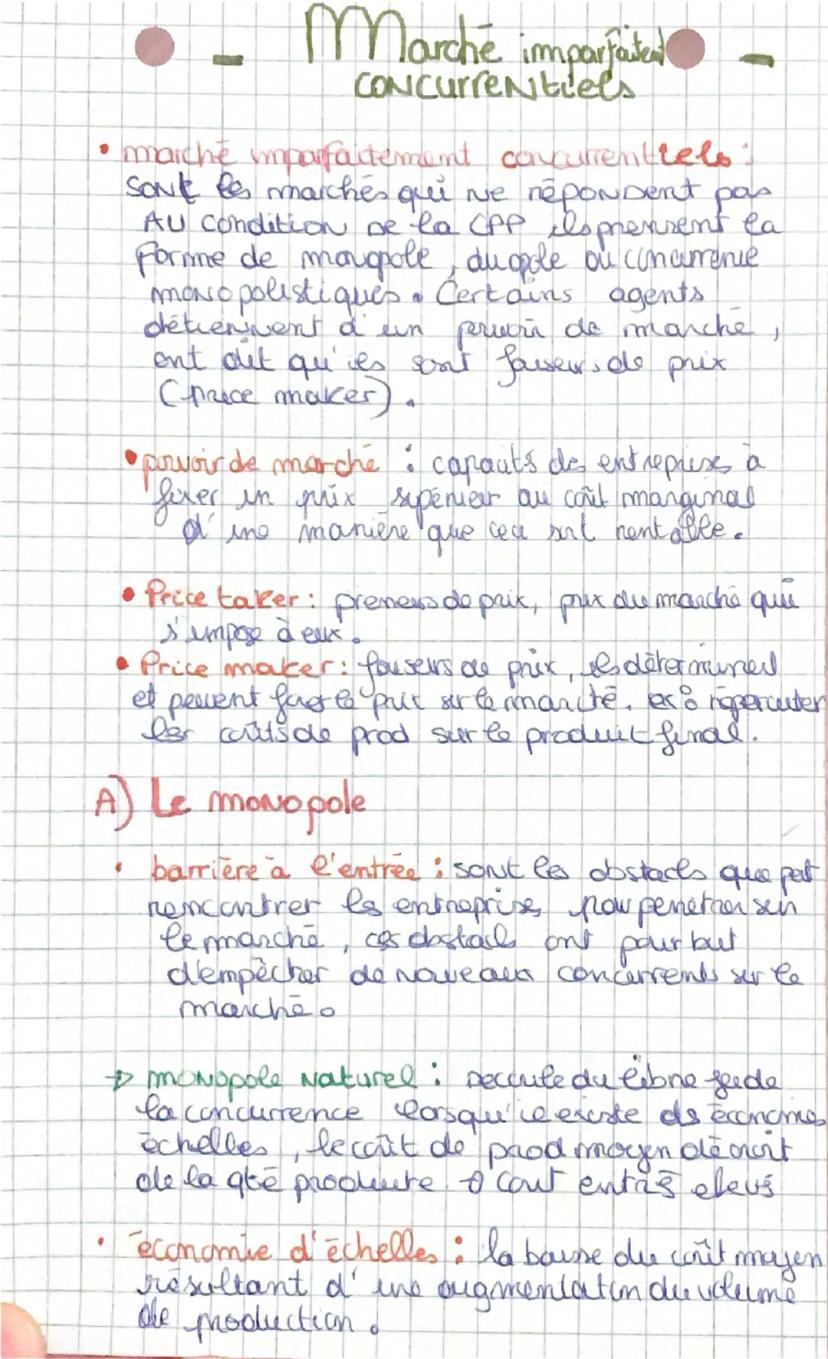 - Marché imparfaitent -
concurrentiels
• marché imparfaitement concurrentiels :
sont les marchés qui ne répondent pas
au condition de la CPP, ils prennent la
forme de monopole, duopole ou concurrence
monopolistiques. Certains agents
détiennent d'un pouvoir de marché,
ont dit qu'ils sont faiseurs de prix
(price maker).
• pouvoir de marché : capacités des entreprises à
fixer un prix supérieur au coût marginal
d'une manière que ceci soit rentable.
• Price taker : preneurs de prix, prix du marché qui
s'impose à eux.
• Price maker : faiseurs de prix, ils déterminent
et peuvent fixer le prix sur le marché. ex : répercuter
les coûts de prod sur le produit final.
A) Le monopole
• barrière à l'entrée : sont les obstacls que pet
rencontrer les entreprises pour penetrer sur
le marché, ces obstacls ont pour but
d'empêcher de nouveaux concurrents sur le
marché.
→ monopole naturel : decoule du libre jeu de
la concurrence lorsqu'il existe des économie
échelles, le coût de prod moyen décroit
de la qté produite → cout entrés elevés
• économie d'échelles : la baisse du coût moyen
résultant d'une augmentation du volume
de production.